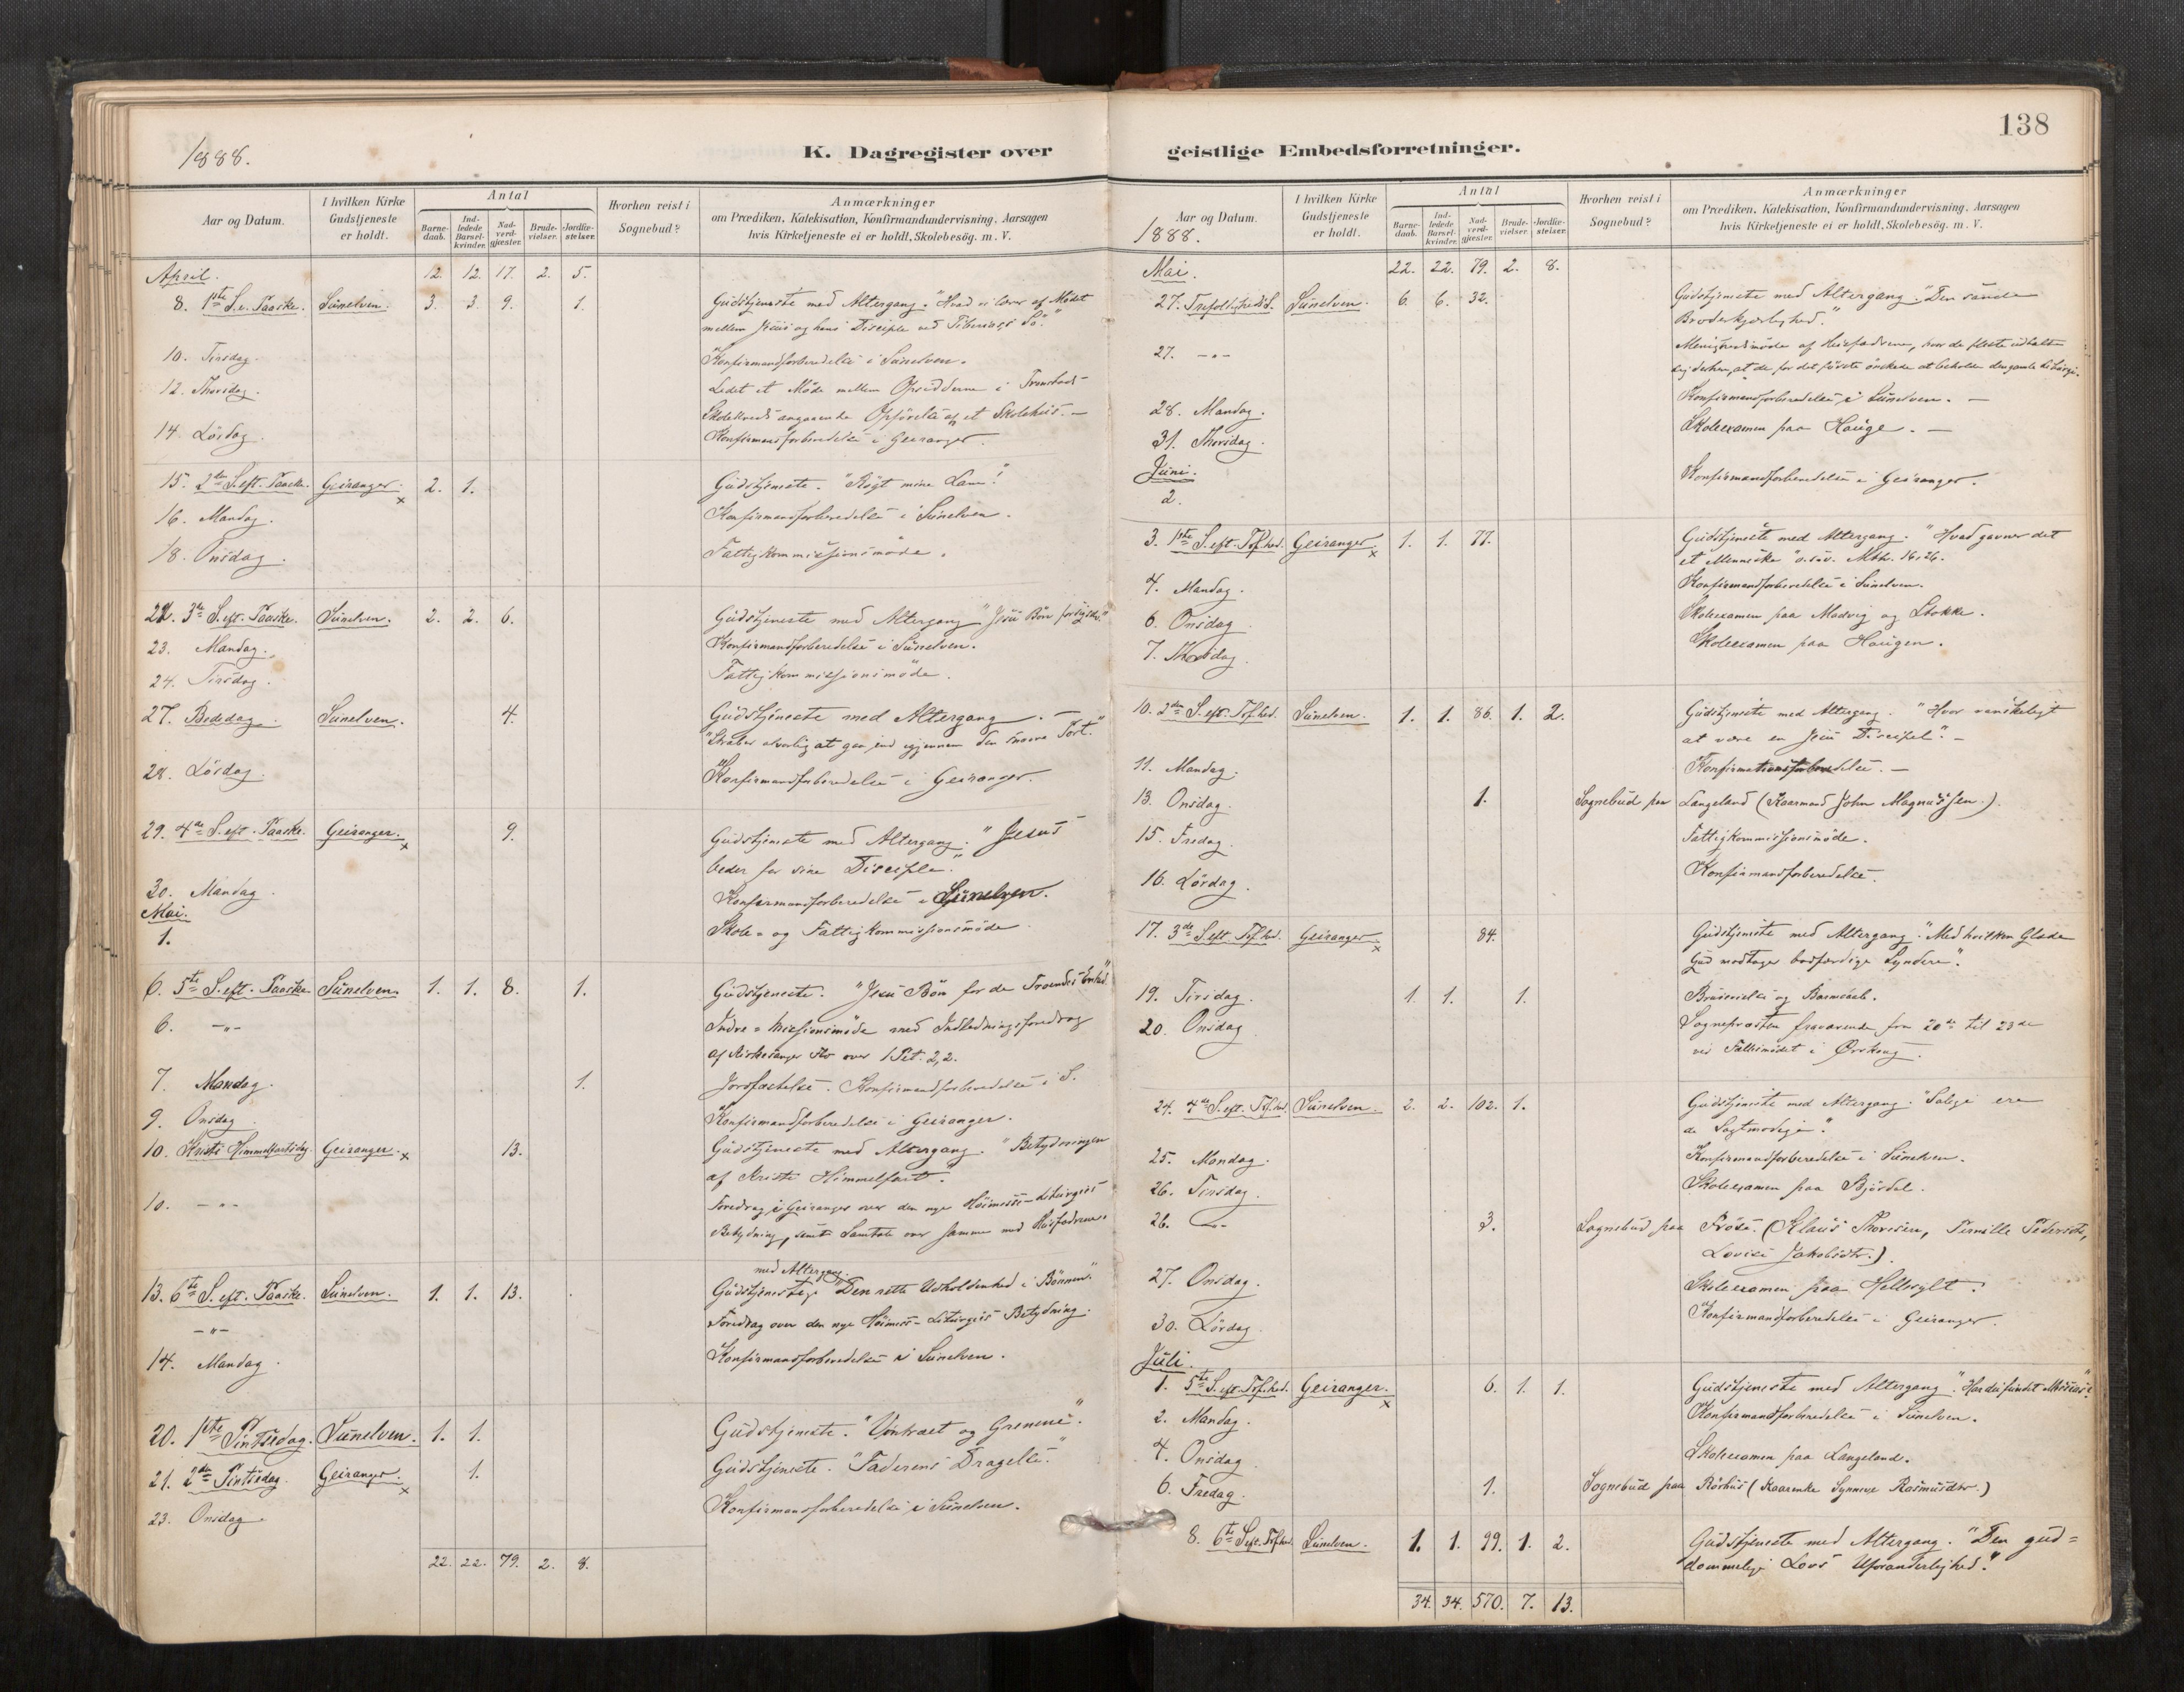 1888.
K. Dagregister over
Aar og Datum.
I hvilken Kirke Gudstjeneste er holdt.
Antal
Barne-daab.
Ind-ledede Barsel-kvinder.
Nad-verd-gjæster.
Brude-vielser.
Jordfæ-stelser.
Hvorhen reist i Sognebud?
Anmærkninger
om Prædiken, Katekisation, Konfirmandundervisning, Aarsagen
hvis Kirketjeneste ei er holdt, Skolebesøg. m. V.
April. 12. 12. 17. 2. 5.
8. 1ste S. e. Paaske. Sunelven. 3. 3. 9. 1. Gudstjeneste med Altergang. "Hvad vi lærer af Mødet
mellem Jesus og hans Disciple ved Tiberias's Sø."
10. Tirsdag. Konfirmandforberedelse i Sunelven.
12. Thorsdag. Ledet et Møde mellem Opsidderne i
Skolekreds angaaende Opførelse af et Skolehus. —
14. Lördag. Konfirmandforberedelse i Geiranger.
15. 2den S. eft. Paaske. Geiranger. x 2. 1. Gudstjeneste. "Røgt mine Lam".
16. Mandag. Konfirmandforberedelse i Sunelven.
18. Onsdag. Fattigkommissionsmøde.
22. 3die S. eft. Paaske. Sunelven. 2. 2. 6. Gudstjeneste med Altergang "Jesu Bøn for
23. Mandag. Konfirmandforberedelse i Sunelven.
24. Tirsdag. Fattigkommissionsmøde.
27. Bededag. Sunelven. 4. Gudstjeneste med Altergang. —
"Stræber alvorlig at gaa ind igjennem den snevre Port."
28. Lördag. Konfirmandforberedelse i Geiranger.
29. 4de S. eft. Paaske. Geiranger. x 9. Gudstjeneste med Altergang. "Jesus
beder for sine Disciple."
30. Mandag. Konfirmandforberedelse i Sunelven.
Mai.
1. Skole- og Fattigkommissionsmøde
6. 5te S. eft. Paaske Sunelven. 1. 1. 8. 1. Gudstjeneste. "Jesu Bøn for de Troendes Enhed."
6. -"- Indre-Missionsmøde med Indledningsforedrag
af Kirkesanger over 1 Pet. 2,2.
7. Mandag. 1. Jordfæstelse. Konfirmandforberedelse i S.
9. Onsdag Konfirmandforberedelse i Geiranger.
10. Kristi Himmelfartsdag Geiranger. x 13. Gudstjeneste med Altergang. "Betydningen
af Kristi Himmelfart".
10. -"- Foredrag i Geiranger over den nye Høimesse-Liturgies
Betydning, samt Samtale over samme med Husfædrene.
med Altergang.
13. 6te S. eft. Paaske. Sunelven. 1. 1. 13. Gudstjeneste. "Den rette Udholdenhed i Bønnen".
-"- Foredrag over den nye Høimess-Liturgies Betydning.
14. Mandag. Konfirmandforberedelse i Sunelven.
20. 1ste Pintsedag. Sunelven. 1. 1. Gudstjeneste. "Vintræet og Grenene".
21. 2den Pintsedag. Geiranger. x 1. Gudstjeneste. "Faderens Dragelse".
23. Onsdag. Konfirmandforberedelse i Sunelven.
22. 22. 79. 2. 8.
138
geistlige Embedsforretninger.
Aar og Datum.
1888.
I hvilken Kirke Gudstjeneste er holdt.
Antal
Barne-daab.
Ind-ledede Barsel-kvinder.
Nad-verd-gjæster.
Brude-vielser.
Jordfæ-stelser.
Hvorhen reist i Sognebud?
Anmærkninger
om Prædiken, Katekisation, Konfirmandundervisning, Aarsagen
hvis Kirketjeneste ei er holdt, Skolebesøg. m. V.
Mai. 22. 22. 79. 2. 8.
27. Trefoldigheds S. Sunelven. 6. 6. 32. Gudstjeneste med Altergang. "Den sande
Broderkjærlighed."
27. -"- Menighedsmøde af Husfædrene, hvor de fleste udtalte
sig derhen, at de for det første ønskede at beholde den gamle Liturgi.
28. Mandag. Konfirmandforberedelse i Sunelven. —
31. Thorsdag. Skoleexamen paa Hauge. —
Juni.
2. Konfirmandforberedelse i Geiranger.
3. 1ste S. eft. Tref.hed. Geiranger. x 1. 1. 77. Gudstjeneste med Altergang. "Hvad gavner det
et Menneske" o.s.v. Mtth. 16,26.
4. Mandag. Konfirmandforberedelse i Sunelven.
6. Onsdag Skoleexamen paa Madvig og Stokke.
7. Thorsdag. Skoleexamen paa Haugen.
10. 2den S. eft. Tref.hed. Sunelven. 1. 1. 86. 1. 2. Gudstjeneste med Altergang. "Hvor vanskeligt
at være en Jesu Discipel". —
11. Mandag. Konfirmationsforberedelse. —
13. Onsdag. 1. Sognebud paa Langeland (Kaarmand John Magnussen.)
15. Fredag. Fattigkommissionsmøde.
16. Lördag. Konfirmandforberedelse.
17. 3die S. eft. Tref.hed. Geiranger. x 84. Gudstjeneste med Altergang. "Med hvilken Glæde
Gud modtager bodfærdige Syndere".
19. Tirsdag. 1. 1. 1. Brudevielse og Barnedaab.
20. Onsdag Sognepræsten fraværende fra 20de til 23de
ved Fællesmødet i Ørskoug.
24. 4de S. eft. Tref.hed. Sunelven. 2. 2. 102. 1. Gudstjeneste med Altergang. "Salige ere
de Sagtmodige".
25. Mandag. Konfirmandforberedelse i Sunelven.
26. Tirsdag. Skoleexamen paa Bjørdal.
26. -"- 3. Sognebud paa (Klaus Thoresen, Pernille Pedersdtr,
Lovise Jakobsdtr.)
27. Onsdag. Skoleexamen paa Hellesylt.
30. Lördag. Konfirmandforberedelse i Geiranger.
Juli.
1. 5te S. eft. Tref.hed. Geiranger. x 6. 1. 1. Gudstjeneste med Altergang. "Har du fundet Messias?"
2. Mandag. Konfirmandforberedelse i Sunelven.
4. Onsdag Skoleexamen paa Langeland.
6. Fredag. 1. Sognebud paa Rørhus (Kaarenke Synneve Rasmusdtr.)
8. 6te S. eft. Tref.hed. Sunelven. 1. 1. 99. 1. 2. Gudstjeneste med Altergang. "Den gud=
dommelige Lovs Uforanderlighed."
34. 34. 570. 7. 13.